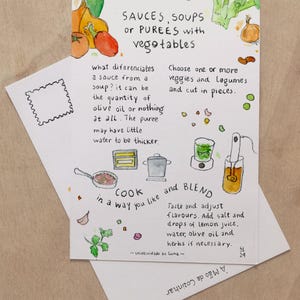 SAUCES, SOUPS
or PUREES with
vegetables
what differenciates
a sauce from a
soup? it can be
the quantity of
olive oil or nothing
at all. The puree
may have little
water to be thicker.
Choose one or more
veggies and legumes
and cut in pieces.
COOK and BLEND
in a way you like
Taste and adjust
flavours. Add salt and
drops of lemon juice,
water, olive oil and
herbs if necessary.
A Mão de Cozinhar